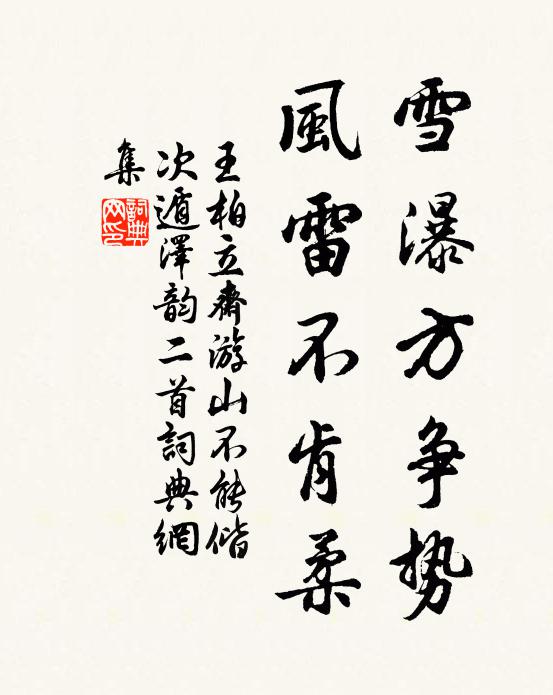 雪瀑方争势
風雷不肯柔
王柏立齋游山不能偕
次遁澤韵二首詞典網
集
詞典
网印